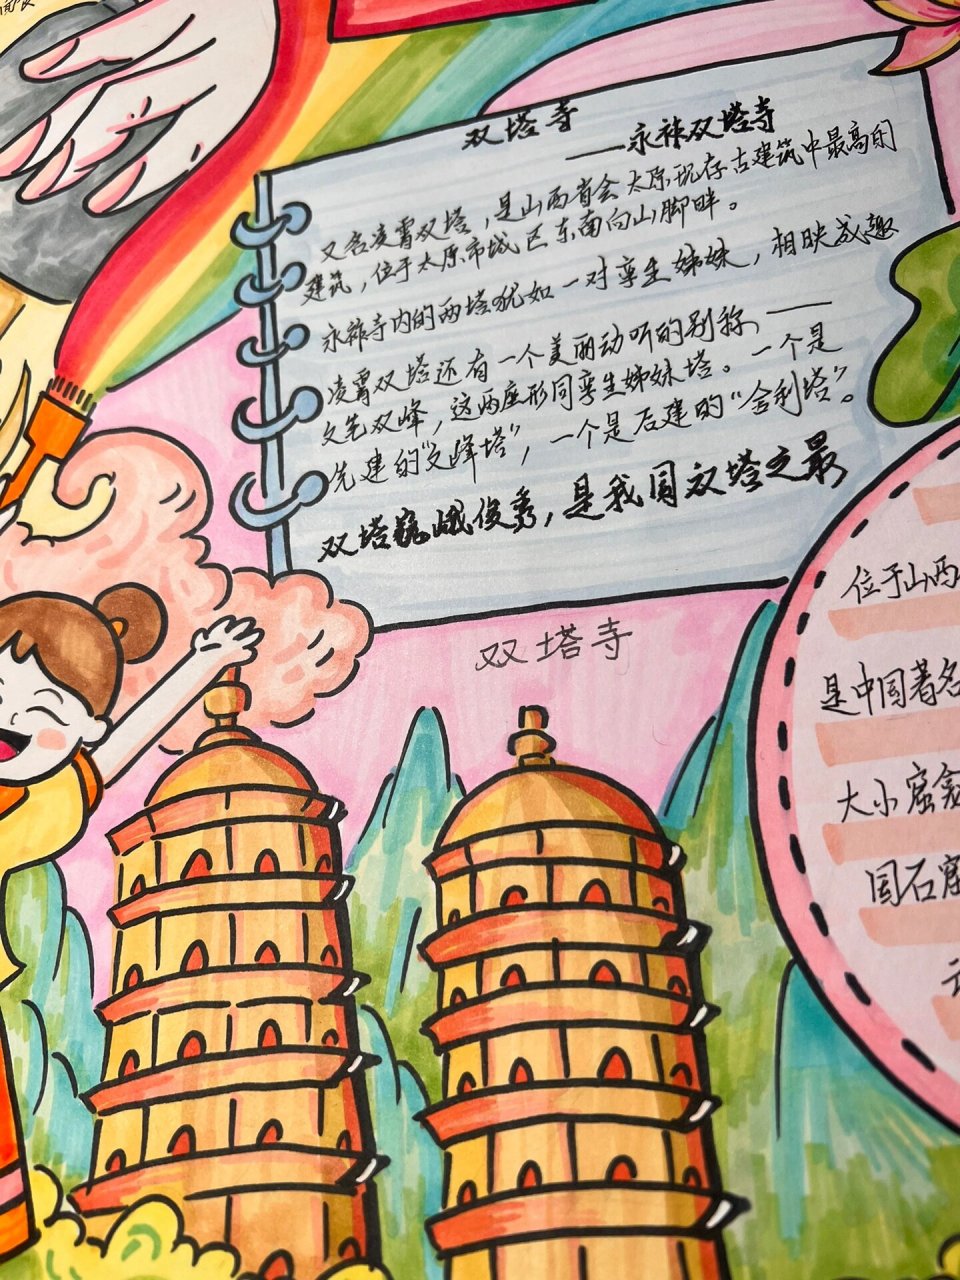 双塔寺
——永祚双塔寺
又名凌霄双塔，是山西省会太原现存古建筑中最高的
建筑，位于太原市城区东南向山脚畔。
永祚寺内的两塔犹如一对孪生姊妹，相映成趣
凌霄双塔还有一个美丽动听的别称，——
文笔双峰，这两座形同孪生姊妹塔。一个是
先建的“文峰塔”，一个是后建的“舍利塔”。
双塔巍峨俊秀，是我国双塔之最
双塔寺
位于山西
是中国著名
大小窟龛
国石窟